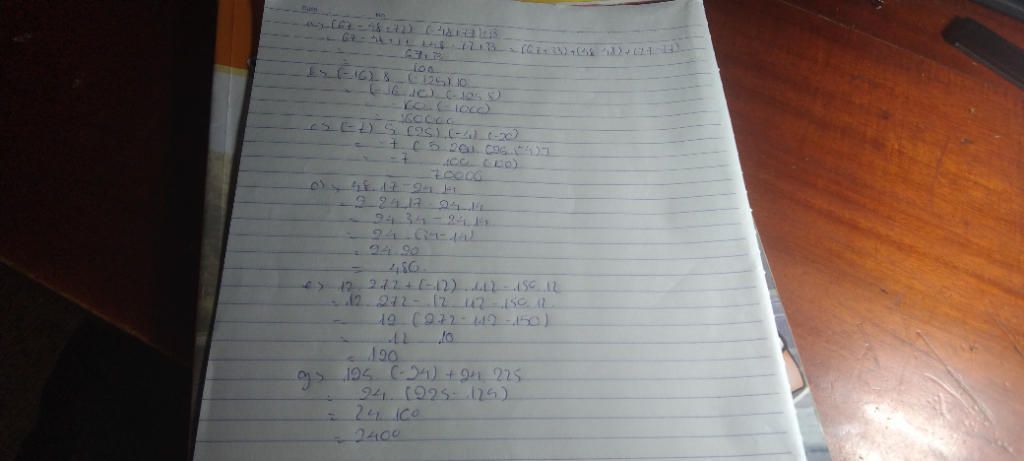 a> (67-48+77) (-48+77)+33
= 67-48+77+48-77+33 = (67+33)+(48-48)+(77-77)
= 67+33
= 100
b> (-16).8.(-125).10
= (-16.10).(-125.8)
= -160.(-1000)
= 160000
c> (-7).5.(25).(-4).(-20)
= -7.(5.20).(25.(-4))
= -7 100 (100)
= 70000
d> 48.17-24.14
= 2.24.17-24.14
= 24.34-24.14
= 24.(34-14)
= 24.20
= 480.
e> 12.272+(-12).112-150.12
= 12.272-12.112-150.12
= 12 (272-112-150)
= 12 10
= 120
g> 125.(-24)+24.225
= 24.(225-125)
= 24.100
= 2400